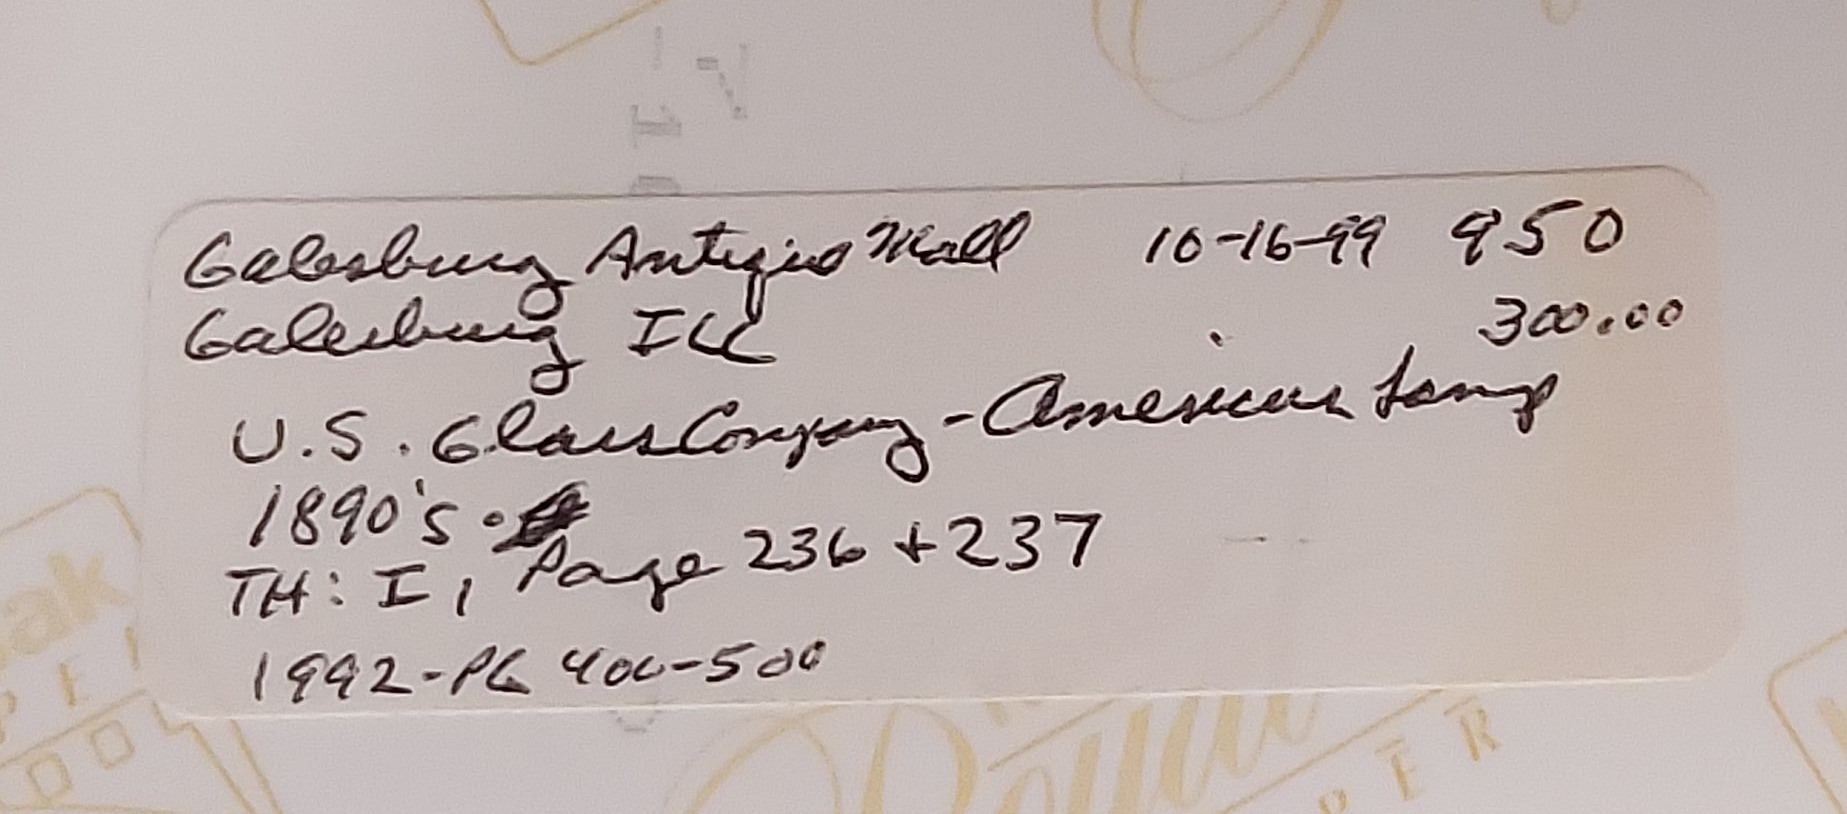 Galesburg Antique Mall 10-16-99 950
Galesburg ILL 300.00
U.S. Glass Company - American Lamp
1890's.
TH: I, Page 236 + 237
1992-PG 400-500